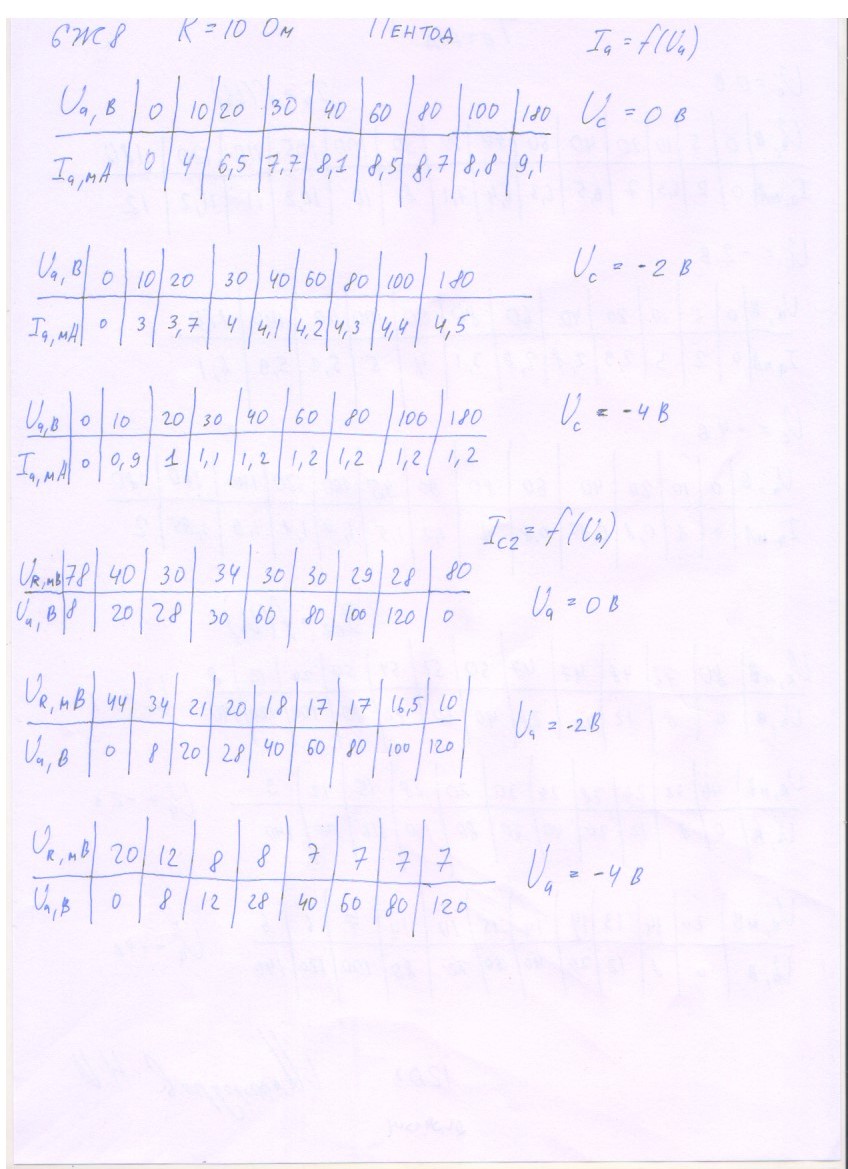 6Ж8 R = 10 Ом Пентод Iа = f(Uа)
Uа, В 0 10 20 30 40 60 80 100 180 Uс = 0 В
Iа, мА 0 4 6,5 7,7 8,1 8,5 8,7 8,8 9,1
Uа, В 0 10 20 30 40 60 80 100 180 Uс = -2 В
Iа, мА 0 3 3,7 4 4,1 4,2 4,3 4,4 4,5
Uа, В 0 10 20 30 40 60 80 100 180 Uс = -4 В
Iа, мА 0 0,9 1 1,1 1,2 1,2 1,2 1,2 1,2
Iс2 = f(Uа)
UR, мВ 78 40 30 34 30 30 29 28 80
Uа, В 8 20 28 30 60 80 100 120 0 Uа = 0 В
UR, мВ 44 34 21 20 18 17 17 16,5 10 Uа = -2 В
Uа, В 0 8 20 28 40 60 80 100 120
UR, мВ 20 12 8 8 7 7 7 7 Uа = -4 В
Uа, В 0 8 12 28 40 60 80 120